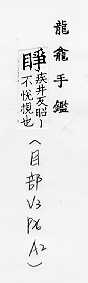 龍龕手鑑
睜疾井反眳〡
不悅視也
（目部 V3 P6 A2）